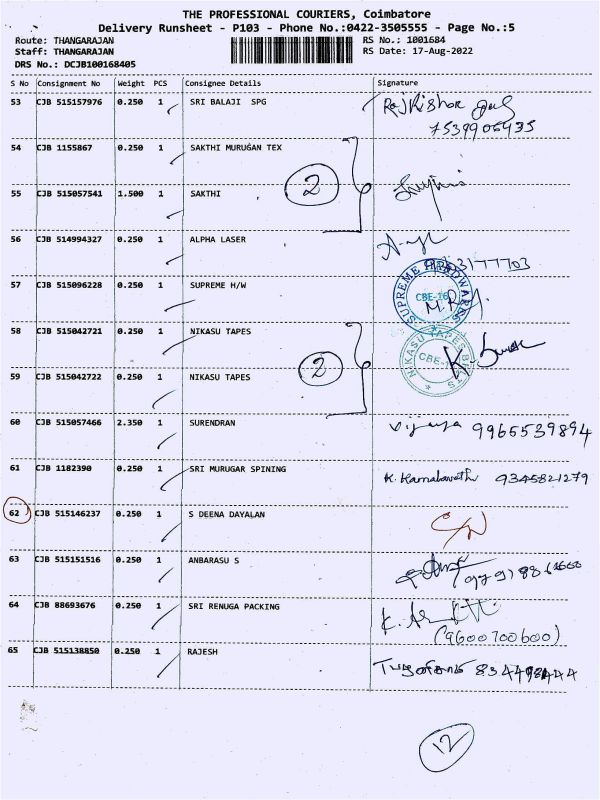 THE PROFESSIONAL COURIERS, Coimbatore
Delivery Runsheet - P103 - Phone No.:0422-3505555 - Page No.:5
Route: THANGARAJAN RS No.: 1001684
Staff: THANGARAJAN RS Date: 17-Aug-2022
DRS No.: DCJB100168405
S No Consignment No Weight PCS Consignee Details Signature
53 CJB 515157976 0.250 1 SRI BALAJI SPG RajKishor
7539906435
54 CJB 1155867 0.250 1 SAKTHI MURUGAN TEX
2
55 CJB 515057541 1.500 1 SAKTHI
56 CJB 514994327 0.250 1 ALPHA LASER
57 CJB 515096228 0.250 1 SUPREME H/W
SUPREME HARDWARES
CBE-16
58 CJB 515042721 0.250 1 NIKASU TAPES
2
NIKASU TAPES
59 CJB 515042722 0.250 1 NIKASU TAPES
60 CJB 515057466 2.350 1 SURENDRAN Vijaya 9965539894
61 CJB 1182390 0.250 1 SRI MURUGAR SPINING 9345821279
62 CJB 515146237 0.250 1 S DEENA DAYALAN
63 CJB 515151516 0.250 1 ANBARASU S
64 CJB 88693676 0.250 1 SRI RENUGA PACKING
(9600700600)
65 CJB 515138850 0.250 1 RAJESH
12